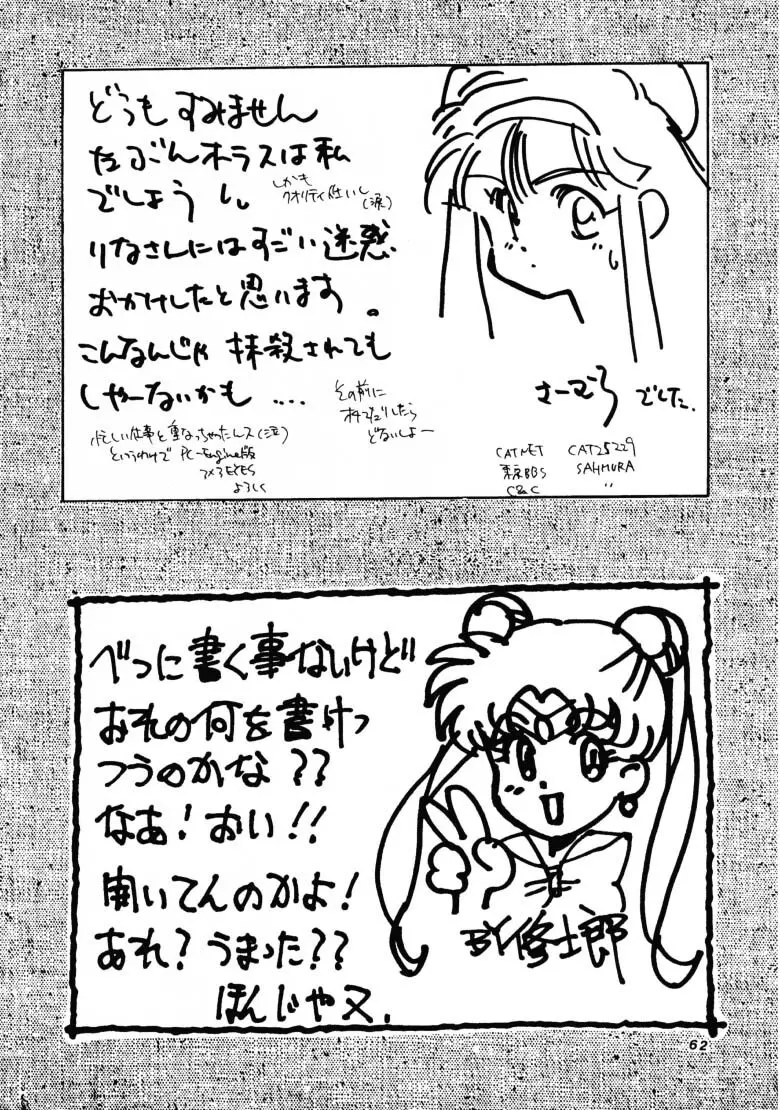 どうもすみません
たぶんオーラスは私
でしょう
しかも
クオリティ低いし
(涙)
りなさんにはすごい迷惑
おかけしたと思います。
こんなんじゃ 抹殺されても
しゃーないかも ....
その前に
どないしよー
忙しい仕事と重なっちゃったんス(泣)
というわけで PC-Engine版
3×3EYES
よろしく
さーむら でした.
CATNET CAT25229
東京BBS SAHMURA
C&C 〃
べつに書く事ないけど
おれの何を書けっ
つうのかな??
なあ!おい!!
聞いてんのかよ!
あれ?うまった??
ほんじゃ又.
BY修士郎
62